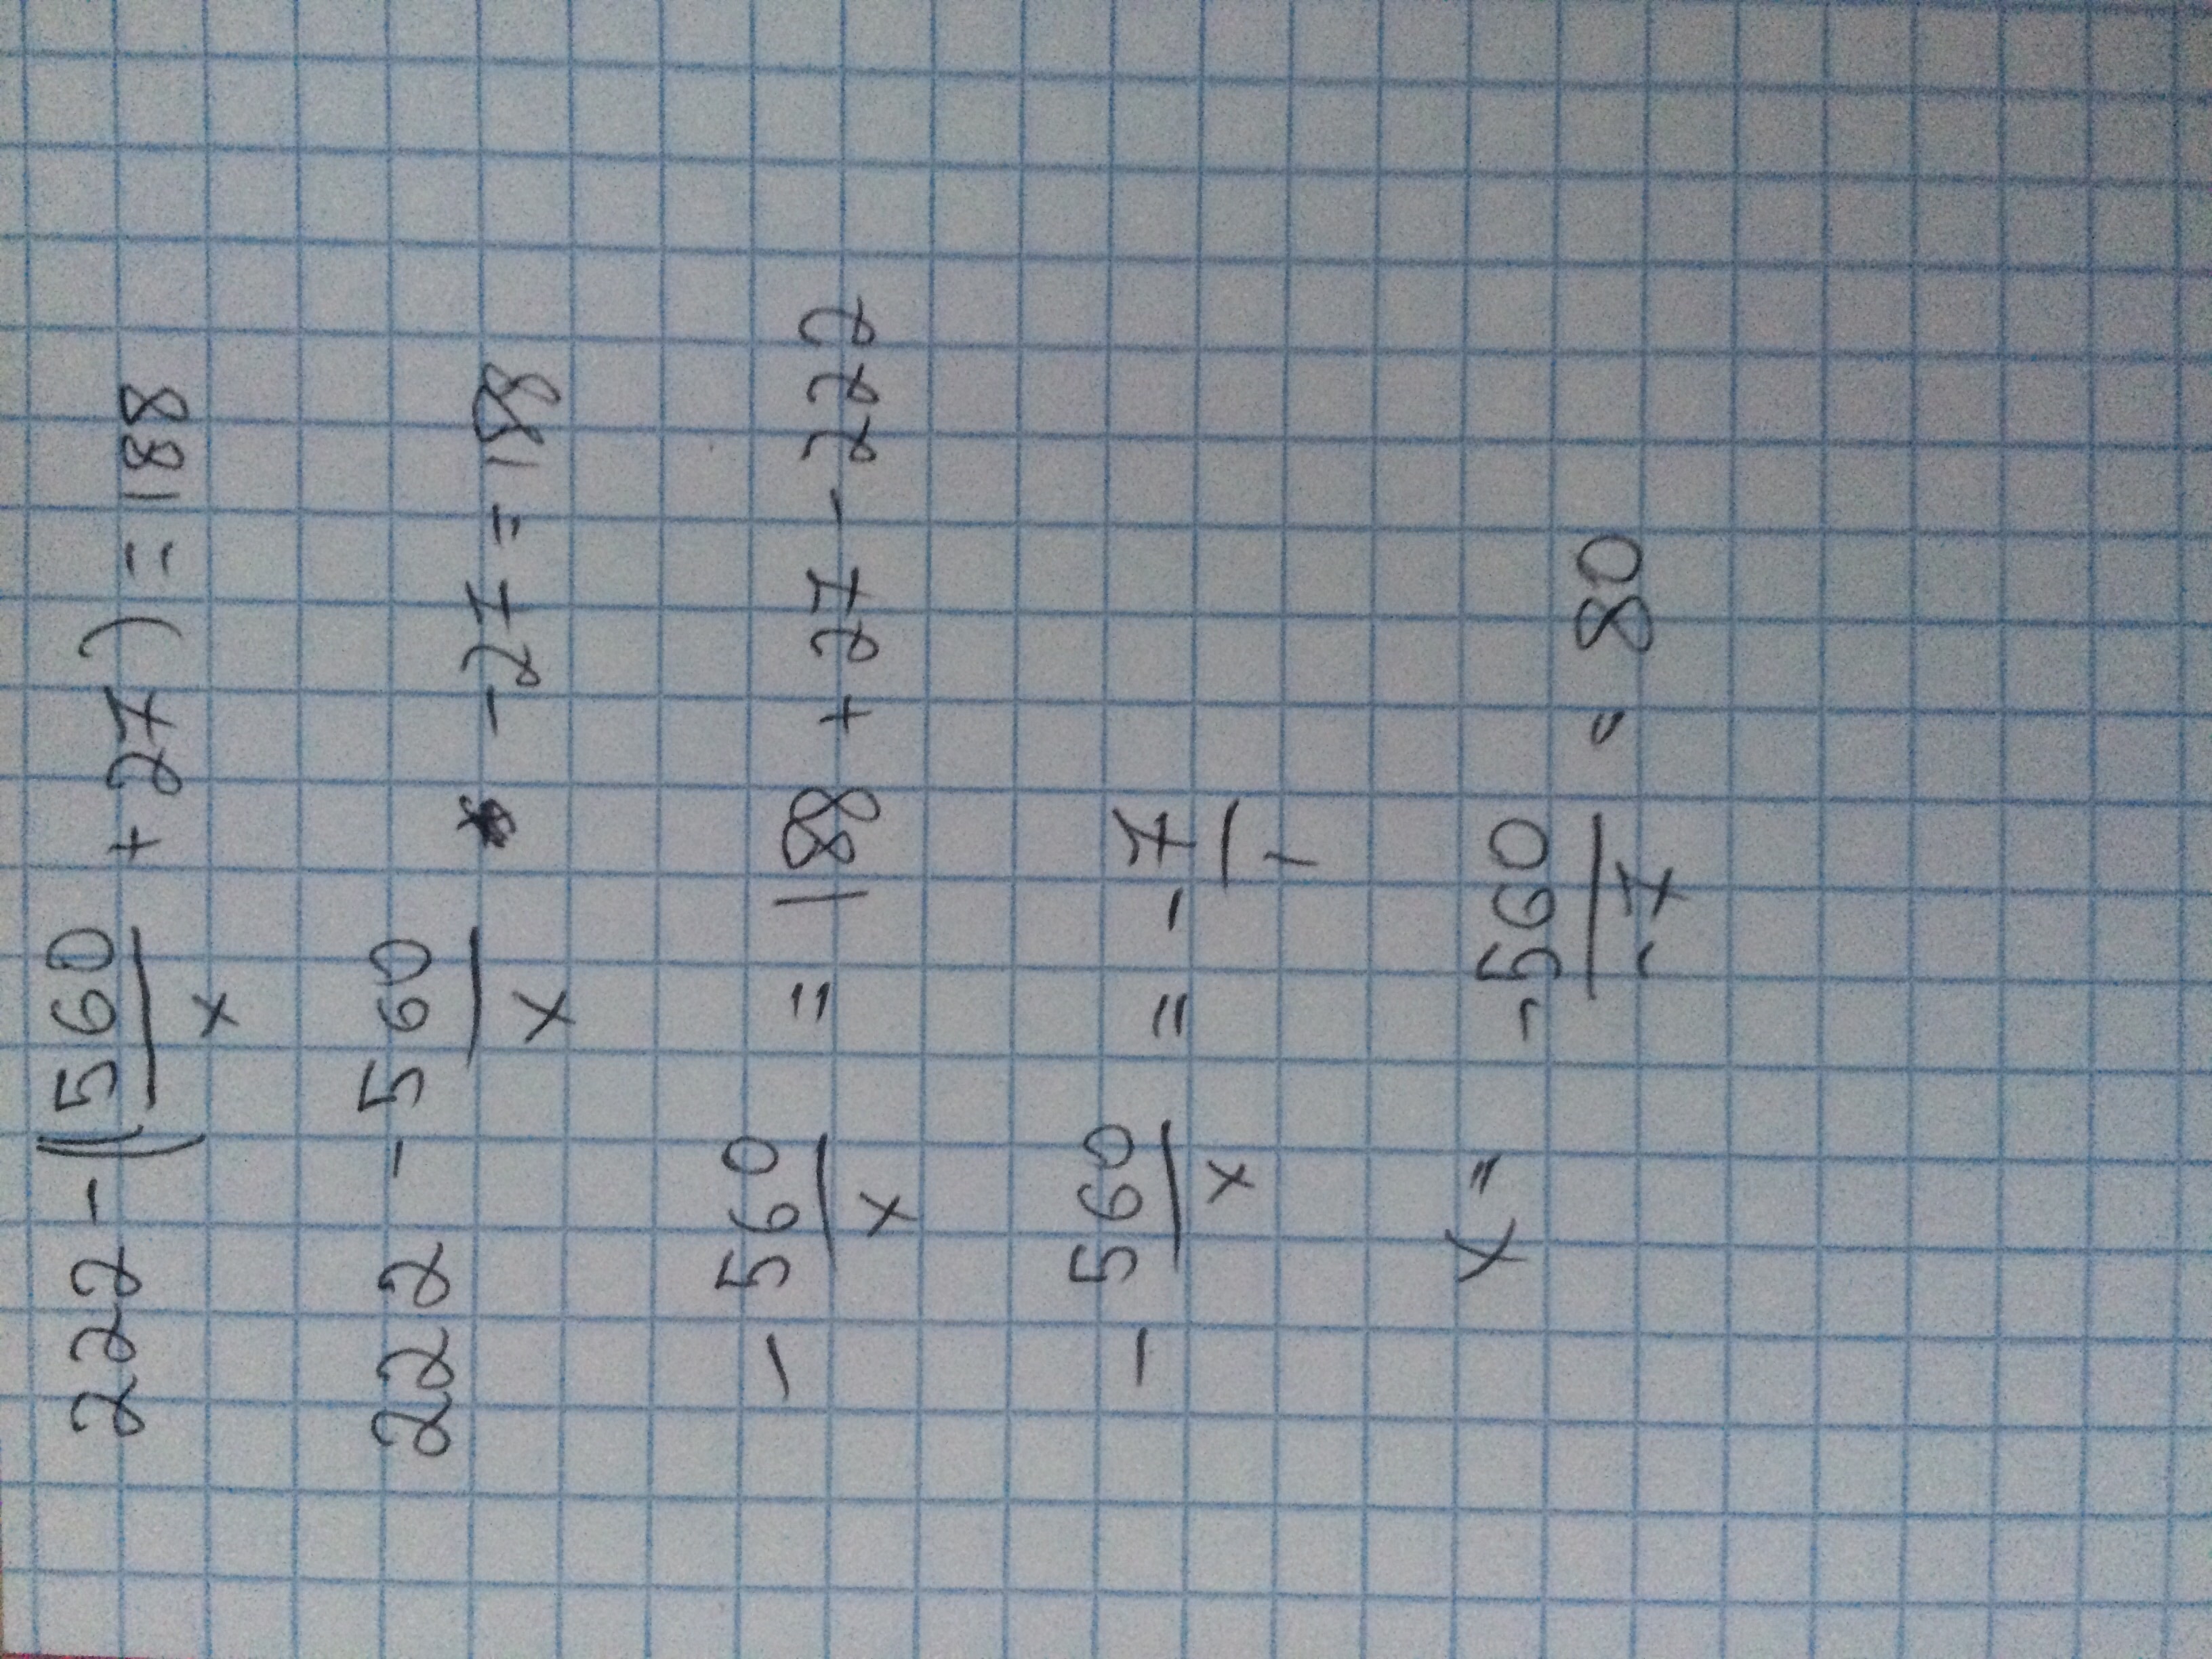 222 - (560/x + 27) = 188
222 - 560/x - 27 = 188
- 560/x = 188 + 27 - 222
- 560/x = - 7/1
x = -560/-7 = 80